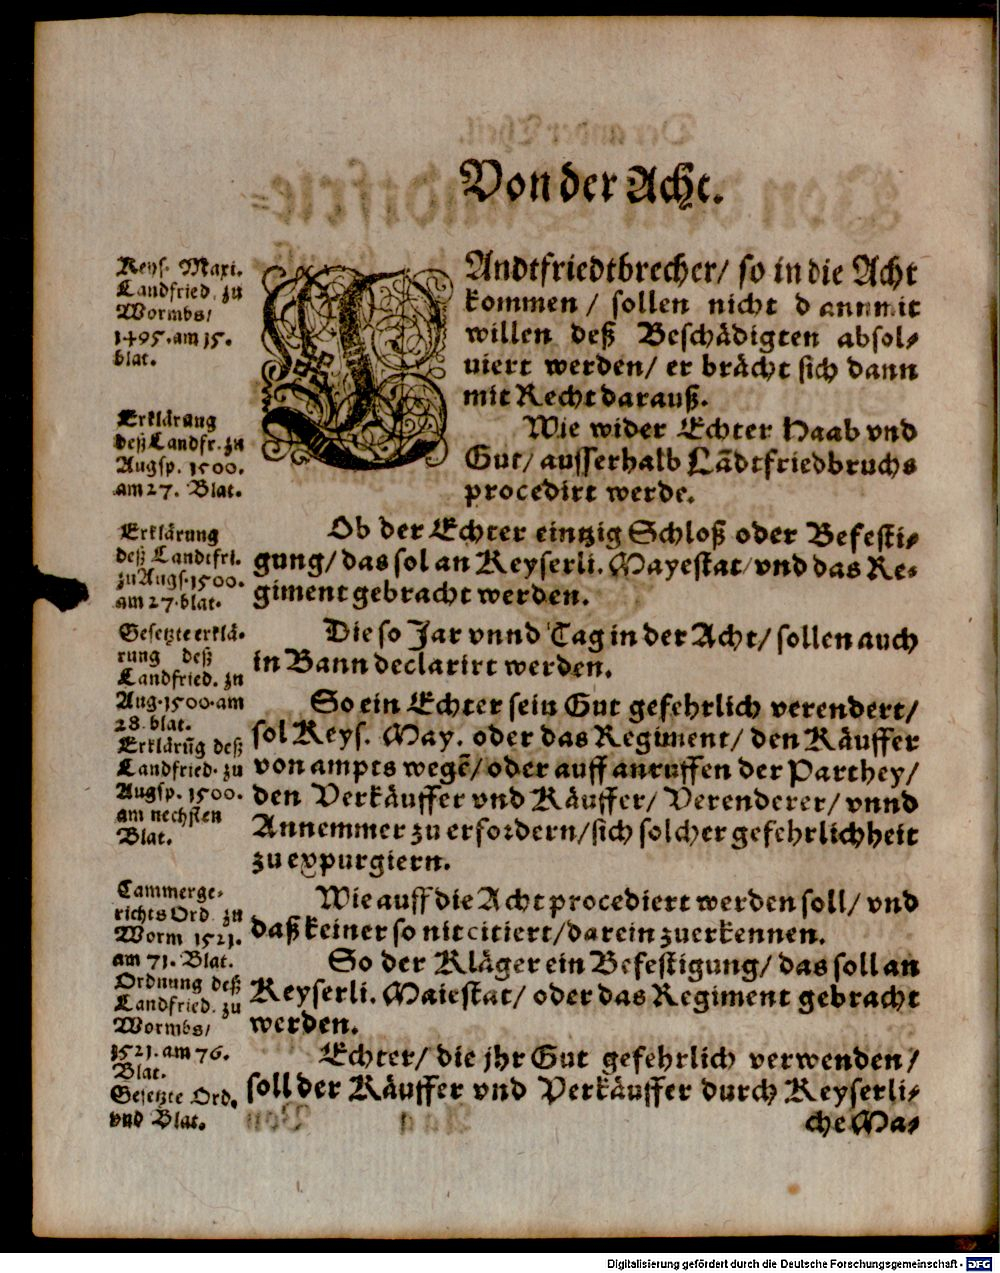 Von der Acht.
Keys. Maxi.
Landfried. zu
Wormbs/
1495. am 15.
blat.
LAndtfriedtbrecher/ so in die Acht
kommen / sollen nicht d ann mit
willen deß Beschädigten absol-
uiert werden/ er brächt sich dann
mit Recht darauß.
Erklärung
deß Landfr. zu
Augsp. 1500.
am 27. Blat.
Wie wider Echter Haab vnd
Gut/ ausserhalb Lãdtfriedbruchs
procedirt werde.
Erklärung
deß Landtfri.
zu Augs. 1500.
am 27. blat.
Ob der Echter eintzig Schloß oder Befesti-
gung/ das sol an Keyserli. Mayestat/ vnd das Re-
giment gebracht werden.
Gesetzte erklä-
rung deß
Landfried. zu
Aug. 1500. am
28. blat.
Die so Jar vnnd Tag in der Acht/ sollen auch
in Bann declarirt werden.
Erklärũg deß
Landfried. zu
Augsp. 1500.
am nechsten
Blat.
So ein Echter sein Gut gefehrlich verendert/
sol Keys. May. oder das Regiment/ den Käuffer
von ampts wegẽ/ oder auff anruffen der Parthey/
den Verkäuffer vnd Käuffer/ Verenderer/ vnnd
Annemmer zu erfordern/ sich solcher gefehrlichheit
zu expurgiern.
Cammerge-
richts Ord. zu
Worm 1521.
am 71. Blat.
Wie auff die Acht procediert werden soll/ vnd
daß keiner so nit citiert/ darein zuerkennen.
Ordnung deß
Landfried. zu
Wormbs/
1521. am 76.
Blat.
So der Kläger ein Befestigung/ das soll an
Keyserli. Maiestat/ oder das Regiment gebracht
werden.
Gesetzte Ord.
vnd Blat.
Echter/ die jhr Gut gefehrlich verwenden/
soll der Käuffer vnd Verkäuffer durch Keyserli-
che Ma-
Digitalisierung gefördert durch die Deutsche Forschungsgemeinschaft - DFG